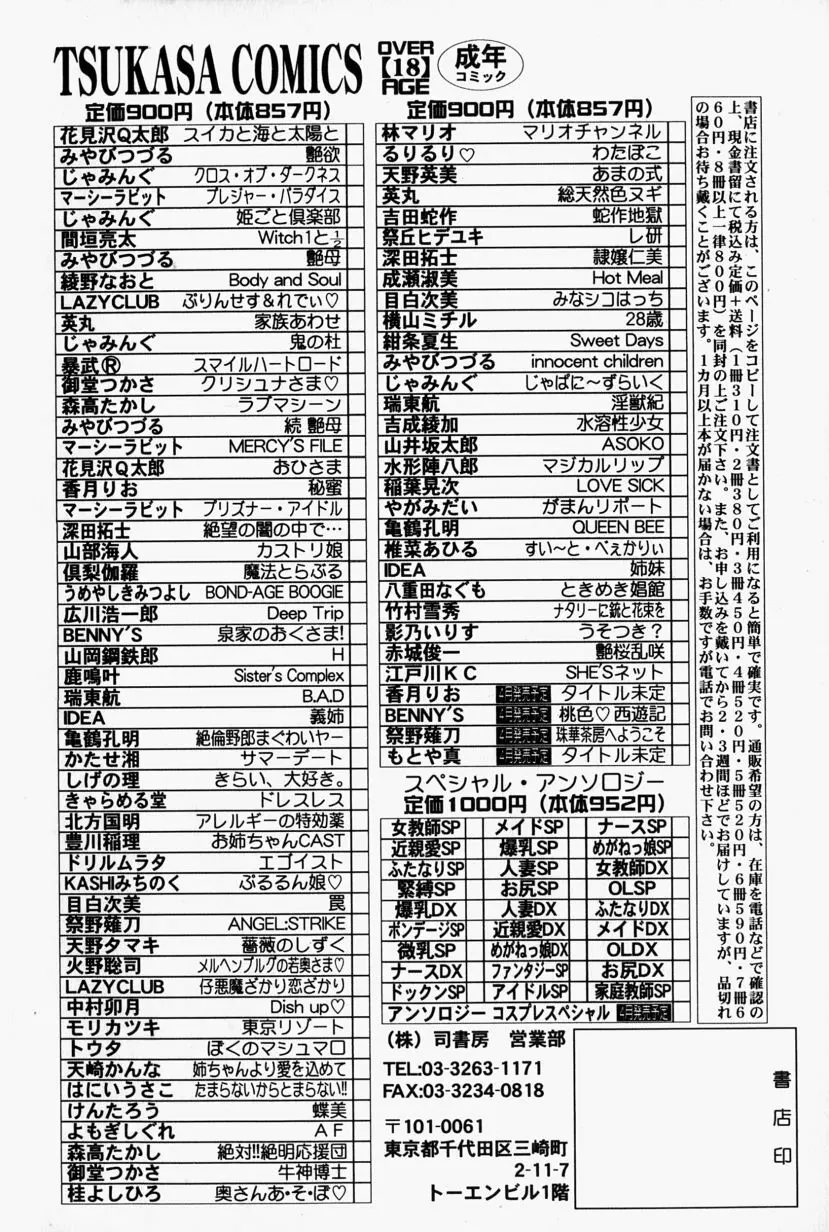 TSUKASA COMICS
OVER
【18】
AGE
成年
コミック
定価900円（本体857円）
花見沢Q太郎 スイカと海と太陽と
みやびつづる 艶欲
じゃみんぐ クロス・オブ・ダークネス
マーシーラビット プレジャー・パラダイス
じゃみんぐ 姫ごと倶楽部
間垣亮太 Witch1と½
みやびつづる 艶母
綾野なおと Body and Soul
LAZYCLUB ぷりんせす&れでぃ♡
英丸 家族あわせ
じゃみんぐ 鬼の杜
暴武® スマイルハートロード
御堂つかさ クリシュナさま♡
森高たかし ラブマシーン
みやびつづる 続 艶母
マーシーラビット MERCY'S FILE
花見沢Q太郎 おひさま
香月りお 秘蜜
マーシーラビット プリズナー・アイドル
深田拓士 絶望の闇の中で…
山部海人 カストリ娘
倶梨伽羅 魔法とらぶる
うめやしきみつよし BOND-AGE BOOGIE
広川浩一郎 Deep Trip
BENNY'S 泉家のおくさま!
山岡鋼鉄郎 H
鹿鳴叶 Sister's Complex
瑞東航 B.A.D
IDEA 義姉
亀鶴孔明 絶倫野郎まぐわいヤー
かたせ湘 サマーデート
しげの理 きらい、大好き。
きゃらめる堂 ドレスレス
北方国明 アレルギーの特効薬
豊川稲理 お姉ちゃんCAST
ドリルムラタ エゴイスト
KASHIみちのく ぷるるん娘♡
目白次美 罠
祭野薙刀 ANGEL:STRIKE
天野タマキ 薔薇のしずく
火野聡司 メルヘンブルグの若奥さま♡
LAZYCLUB 仔悪魔ざかり恋ざかり
中村卯月 Dish up♡
モリカツキ 東京リゾート
トウタ ぼくのマシュマロ
天崎かんな 姉ちゃんより愛を込めて
はにいうさこ たまらないからとまらない!!
けんたろう 蝶美
よもぎしぐれ A F
森高たかし 絶対!!絶明応援団
御堂つかさ 牛神博士
桂よしひろ 奥さんあ・そ・ぼ♡
定価900円（本体857円）
林マリオ マリオチャンネル
るりるり♡ わたぼこ
天野英美 あまの式
英丸 総天然色ヌギ
吉田蛇作 蛇作地獄
祭丘ヒデユキ レ研
深田拓士 隷嬢仁美
成瀬淑美 Hot Meal
目白次美 みなシコはっち
横山ミチル 28歳
紺条夏生 Sweet Days
みやびつづる innocent children
じゃみんぐ じゃぱに〜ずらいく
瑞東航 淫獣紀
吉成綾加 水溶性少女
山井坂太郎 ASOKO
水形陣八郎 マジカルリップ
稲葉晃次 LOVE SICK
やがみだい がまんリポート
亀鶴孔明 QUEEN BEE
椎菜あひる すい〜と・べぇかりぃ
IDEA 姉妹
八重田なぐも ときめき娼館
竹村雪秀 ナタリーに銃と花束を
影乃いりす うそつき？
赤城俊一 艶桜乱咲
江戸川KC SHE'Sネット
香月りお 4日発売予定 タイトル未定
BENNY'S 4日発売予定 桃色♡西遊記
祭野薙刀 4日発売予定 珠華茶房へようこそ
もとや真 4日発売予定 タイトル未定
スペシャル・アンソロジー
定価1000円（本体952円）
女教師SP メイドSP ナースSP
近親愛SP 爆乳SP めがねっ娘SP
ふたなりSP 人妻SP 女教師DX
緊縛SP お尻SP OLSP
爆乳DX 人妻DX ふたなりDX
ボンデージSP 近親愛DX メイドDX
微乳SP めがねっ娘DX OLDX
ナースDX ファンタジーSP お尻DX
ドックンSP アイドルSP 家庭教師SP
アンソロジー コスプレスペシャル 4日発売予定
（株）司書房 営業部
TEL:03-3263-1171
FAX:03-3234-0818
〒101-0061
東京都千代田区三崎町
2-11-7
トーエンビル1階
書店に注文される方は、このページをコピーして注文書としてご利用になると簡単で確実です。通販希望の方は、在庫を電話などで確認の
上、現金書留にて税込み定価+送料（1冊310円・2冊380円・3冊450円・4冊520円・5冊520円・6冊590円・7冊6
60円・8冊以上一律800円）を同封の上ご注文下さい。また、お申し込みを戴いてから2・3週間ほどでお届けしていますが、品切れ
の場合お待ち戴くことがございます。1カ月以上本が届かない場合は、お手数ですが電話でお問い合わせ下さい。
書店印